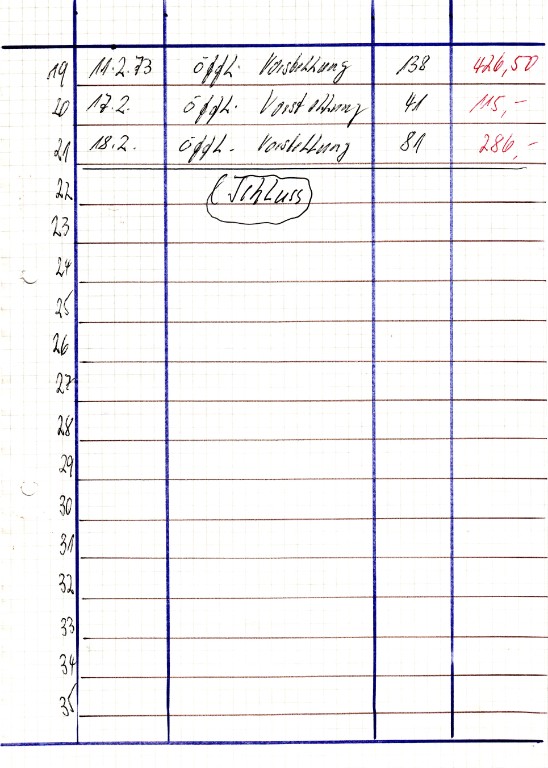 19 11.2.73 öffl. Vorstellung 138 426,50
20 17.2. öffl. Vorstellung 41 115,-
21 18.2. öffl. Vorstellung 81 286,-
22 Schluss
23
24
25
26
27
28
29
30
31
32
33
34
35